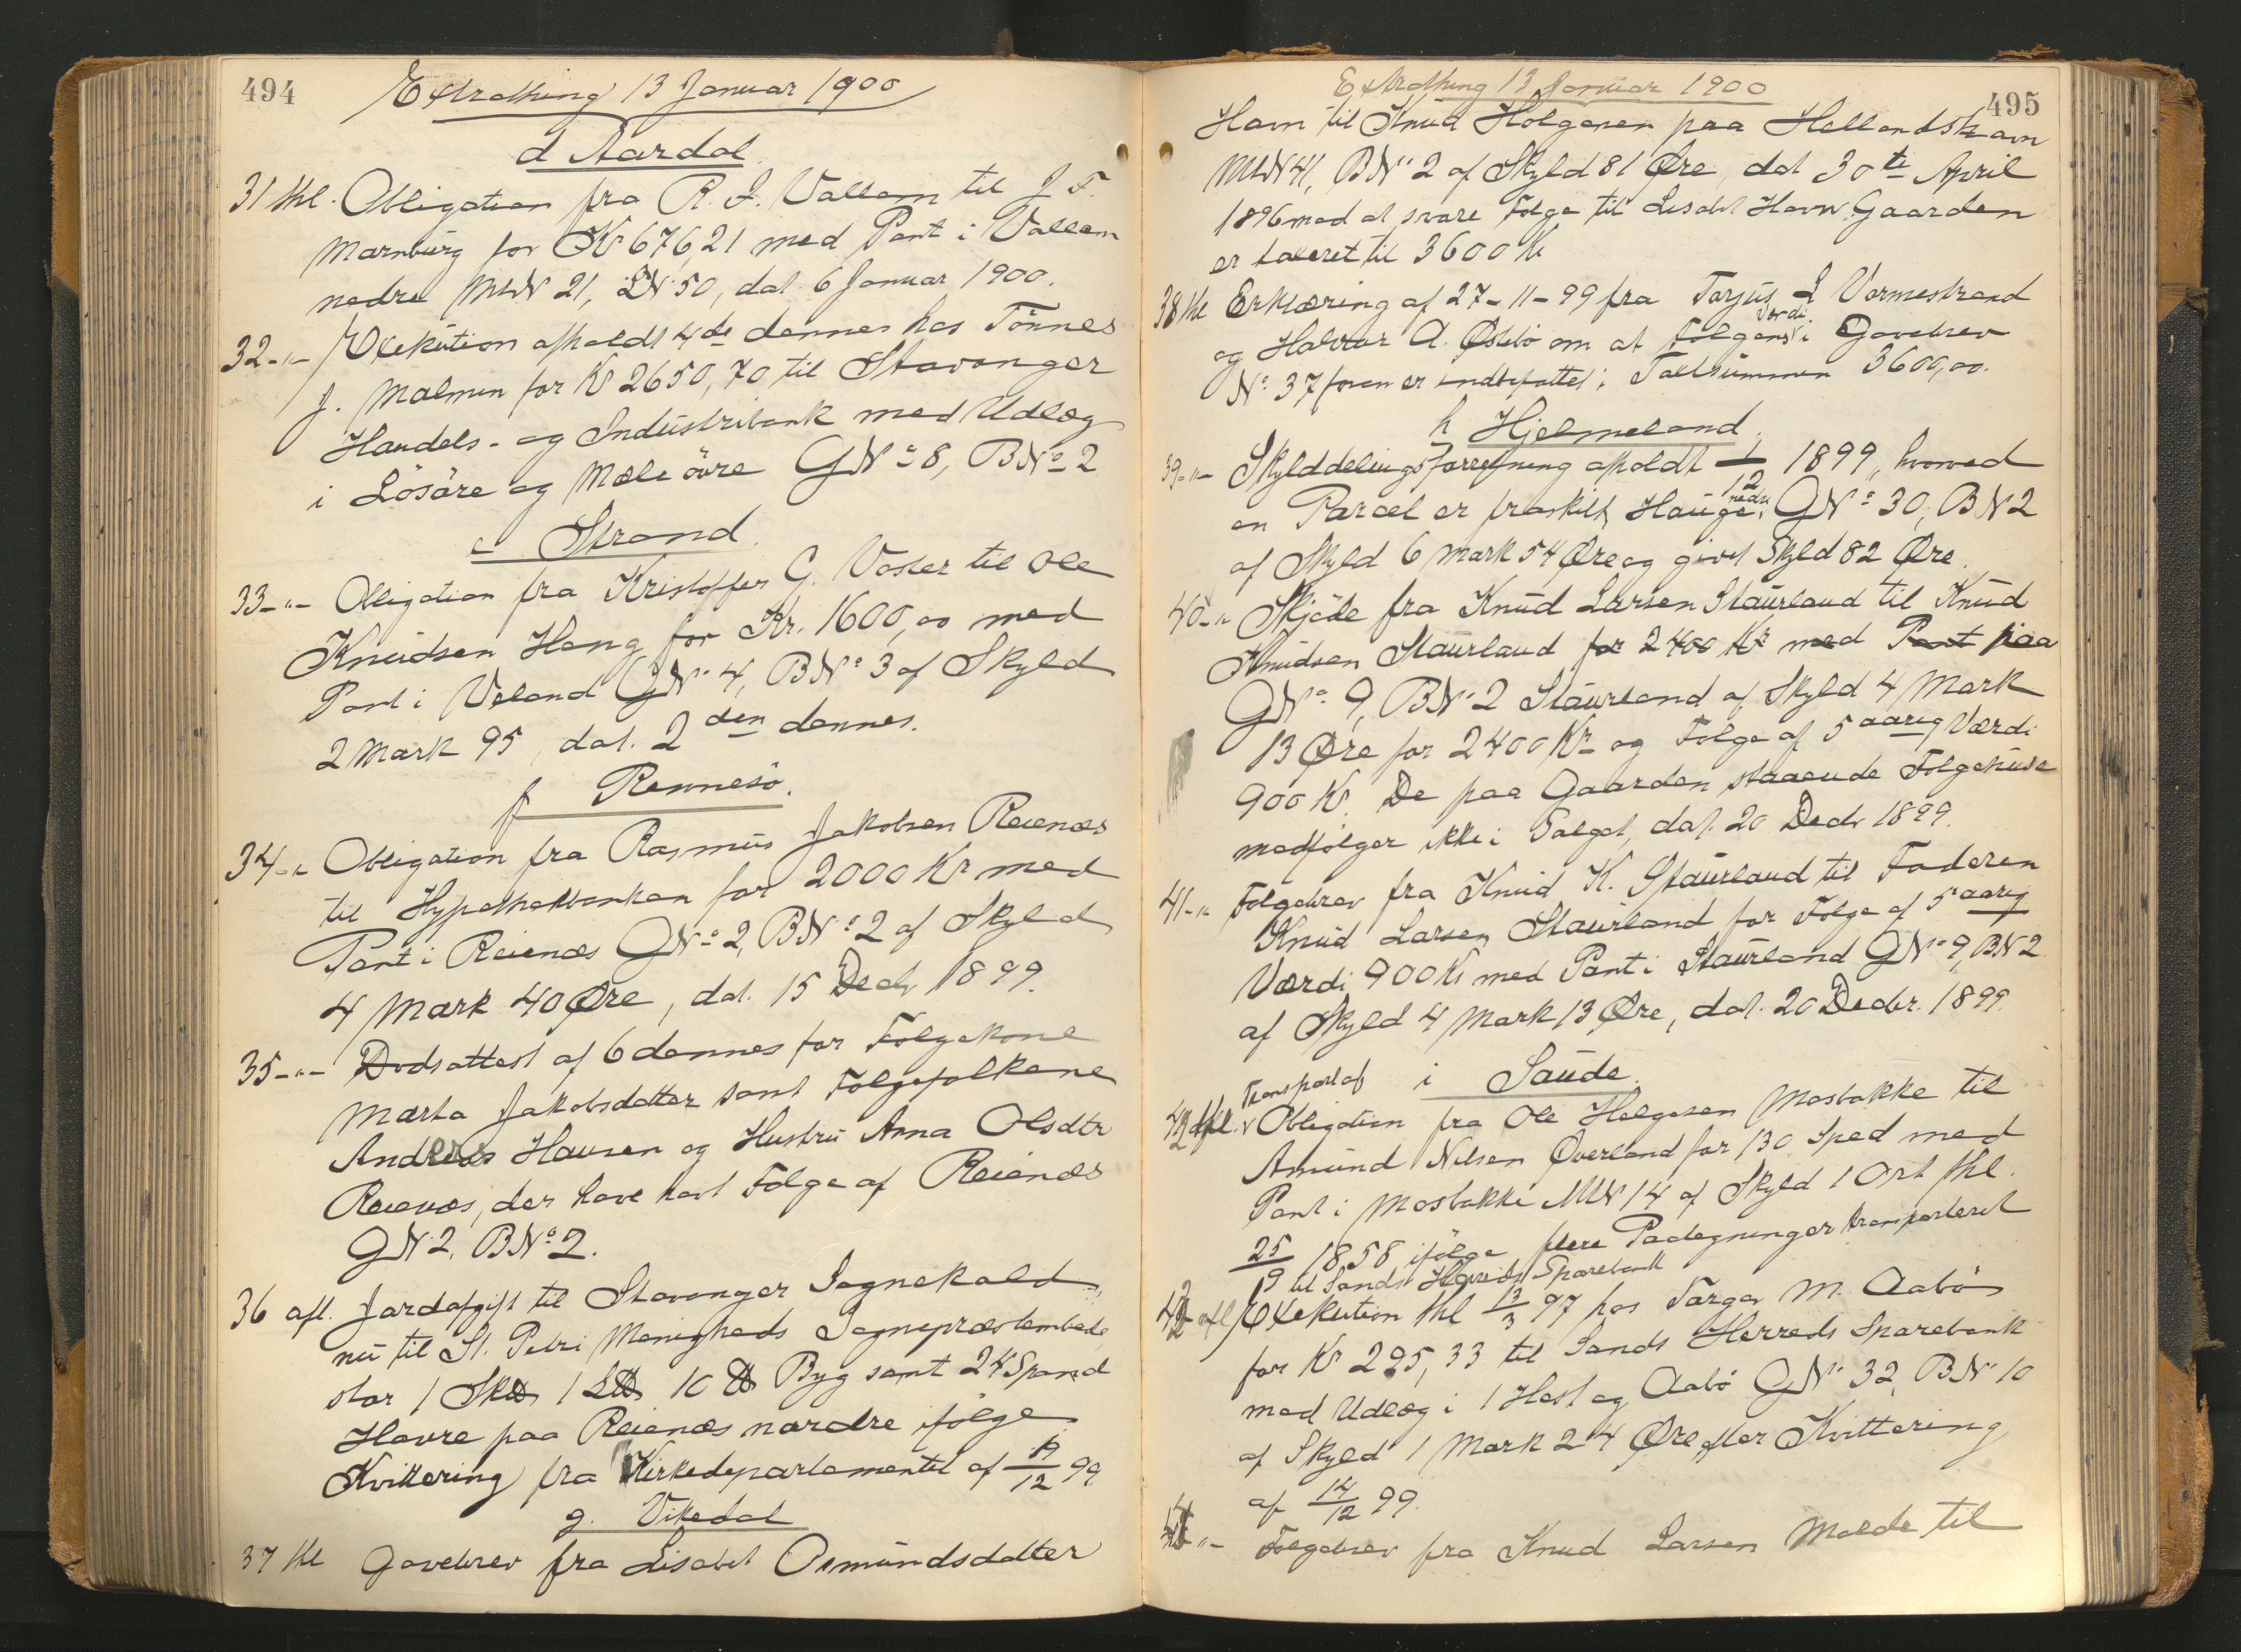 494
Extrathing 13 Januar 1900
d Aardal.
31 thl. Obligation fra R. I. Vallem til J F.
Marnburg for Kr 676,21 med Pant i Vallem
nedre MLN 21, LN 50, dat. 6 Januar 1900.
32 -"- Exekution afholdt 4de dennes hos Tönnes
J. Malmin for Kr 2650,70 til Stavanger
Handels- og Industribank med Udlæg
i Lösöre og Mæle övre GNo 8, BNo 2
e Strand.
33 -"- Obligation fra Kristoffer G. Voster til Ole
Knudsen Heng for Kr. 1600,00 med
Pant i Veland GNo 4, BNo 3 af Skyld
2 Mark 95, dat. 2den dennes.
f Rennesö.
34 -"- Obligation fra Rasmus Jakobsen Reienæs
til Hypothekbanken for 2000 Kr med
Pant i Reienæs GNo 2, BNo 2 af Skyld
4 Mark 40 Øre, dat. 15 Decbr 1899.
35 -"- Dödsattest af 6 dennes for Følgekone
Marta Jakobsdatter samt Følgefolkene
Andreas Hansen og Hustru Anna Olsdtr
Reienæs, der have havt Følge af Reienæs
GN 2, BNo 2.
36 afl. Jordafgift til Stavanger Sognekald,
nu til St. Petri Menigheds Sognepræstembede
stor 1 Sk℔ 1 L℔ 10 ℔ Byg samt 24 Spand
Havre paa Reienæs nordre ifølge
Kvittering fra Kirkedepartementet af 19/12 99
g. Vikedal
37 thl Gavebrev fra Lisabet Osmundsdatter
Extrathing 13 Januar 1900
495
Havn til Knud Holgersen paa Hellandshavn
MLN 41, BNo 2 af Skyld 81 Øre, dat 30te April
1896 mod at svare Følge til Lisabet Havn. Gaarden
er taxeret til 3600 Kr
38 thl Erklæring af 27-11-99 fra Torjus L Vormestrand
og Halvor A. Østebö om at Følgens Værdi i Gavebrev
No. 37 foran er indbefattet i Taxtsummen 3600,00.
h Hjelmeland.
39 -"- Skylddelingsforretning afholdt 1/12 1899, hvorved
en Parcel er fraskilt Hauge nedr. GNo 30, BN 2
af Skyld 6 Mark 54 Øre og givet Skyld 82 Øre.
40 -"- Skjöde fra Knud Larsen Staurland til Knud
Knudsen Staurland for 2400 Kr med Pant paa
GNo 9, BNo 2 Staurland af Skyld 4 Mark
13 Øre for 2400 Kr og Følge af 5 aarig Værdi
900 Kr. De paa Gaarden staaende Følgehuse
medfølger ikke i Salget, dat. 20 Decbr 1899.
41 -"- Følgebrev fra Knud K. Staurland til Faderen
Knud Larsen Staurland for Følge af 5 aarig
Værdi 900 Kr med Pant i Staurland GNo 9, BN 2
af Skyld 4 Mark 13 Øre, dat. 20 Decbr. 1899.
i Saude.
Transport af
42 thl. Obligation fra Ole Helgesen Mosbakke til
Amund Nilsen Øverland for 130 Spd med
Pant i Mosbakke MLN 14 af Skyld 1 Ort thl.
25/9 1858 ifölge flere Paategninger transporteret
til Sands Herreds Sparebank
afl Exekution thl 13/3 97 hos Torger M. Aabö
for Kr 295,33 til Sands Herreds Sparebank
med Udlæg i 1 Hest og Aabö GNo 32, BN 10
af Skyld 1 Mark 24 Øre efter Kvittering
af 14/12 99.
-"- Følgebrev fra Knud Larsen Molde til